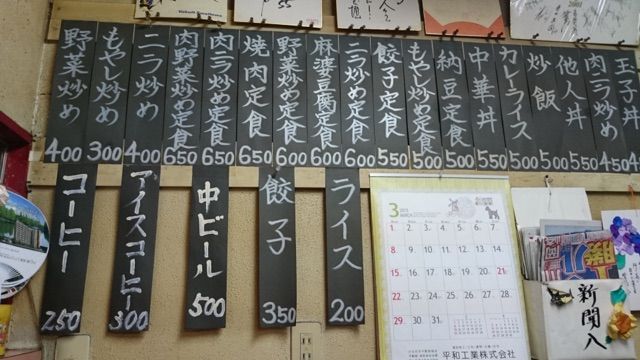 玉子丼
肉ニラ炒め 450
他人丼 500
炒飯 500
カレーライス 500
中華丼 550
納豆定食 500
もやし炒め定食 500
餃子定食 550
ニラ炒め定食 600
麻婆豆腐定食 600
野菜炒め定食 600
焼肉定食 650
肉ニラ炒め定食 650
肉野菜炒め定食 650
ニラ炒め 400
もやし炒め 300
野菜炒め 400
ライス 200
餃子 350
中ビール 500
アイスコーヒー 300
コーヒー 250
3
1 2 3 4 5 6 7
8 9 10 11 12 13 14
15 16 17 18 19 20 21
22 23 24 25 26 27 28
29 30 31
平和工業株式会社
新聞入